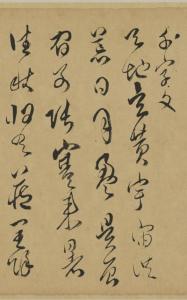 千字文
天地玄黄宇宙洪
荒日月盈昃辰
宿列張寒来暑
往秋收冬藏閏餘